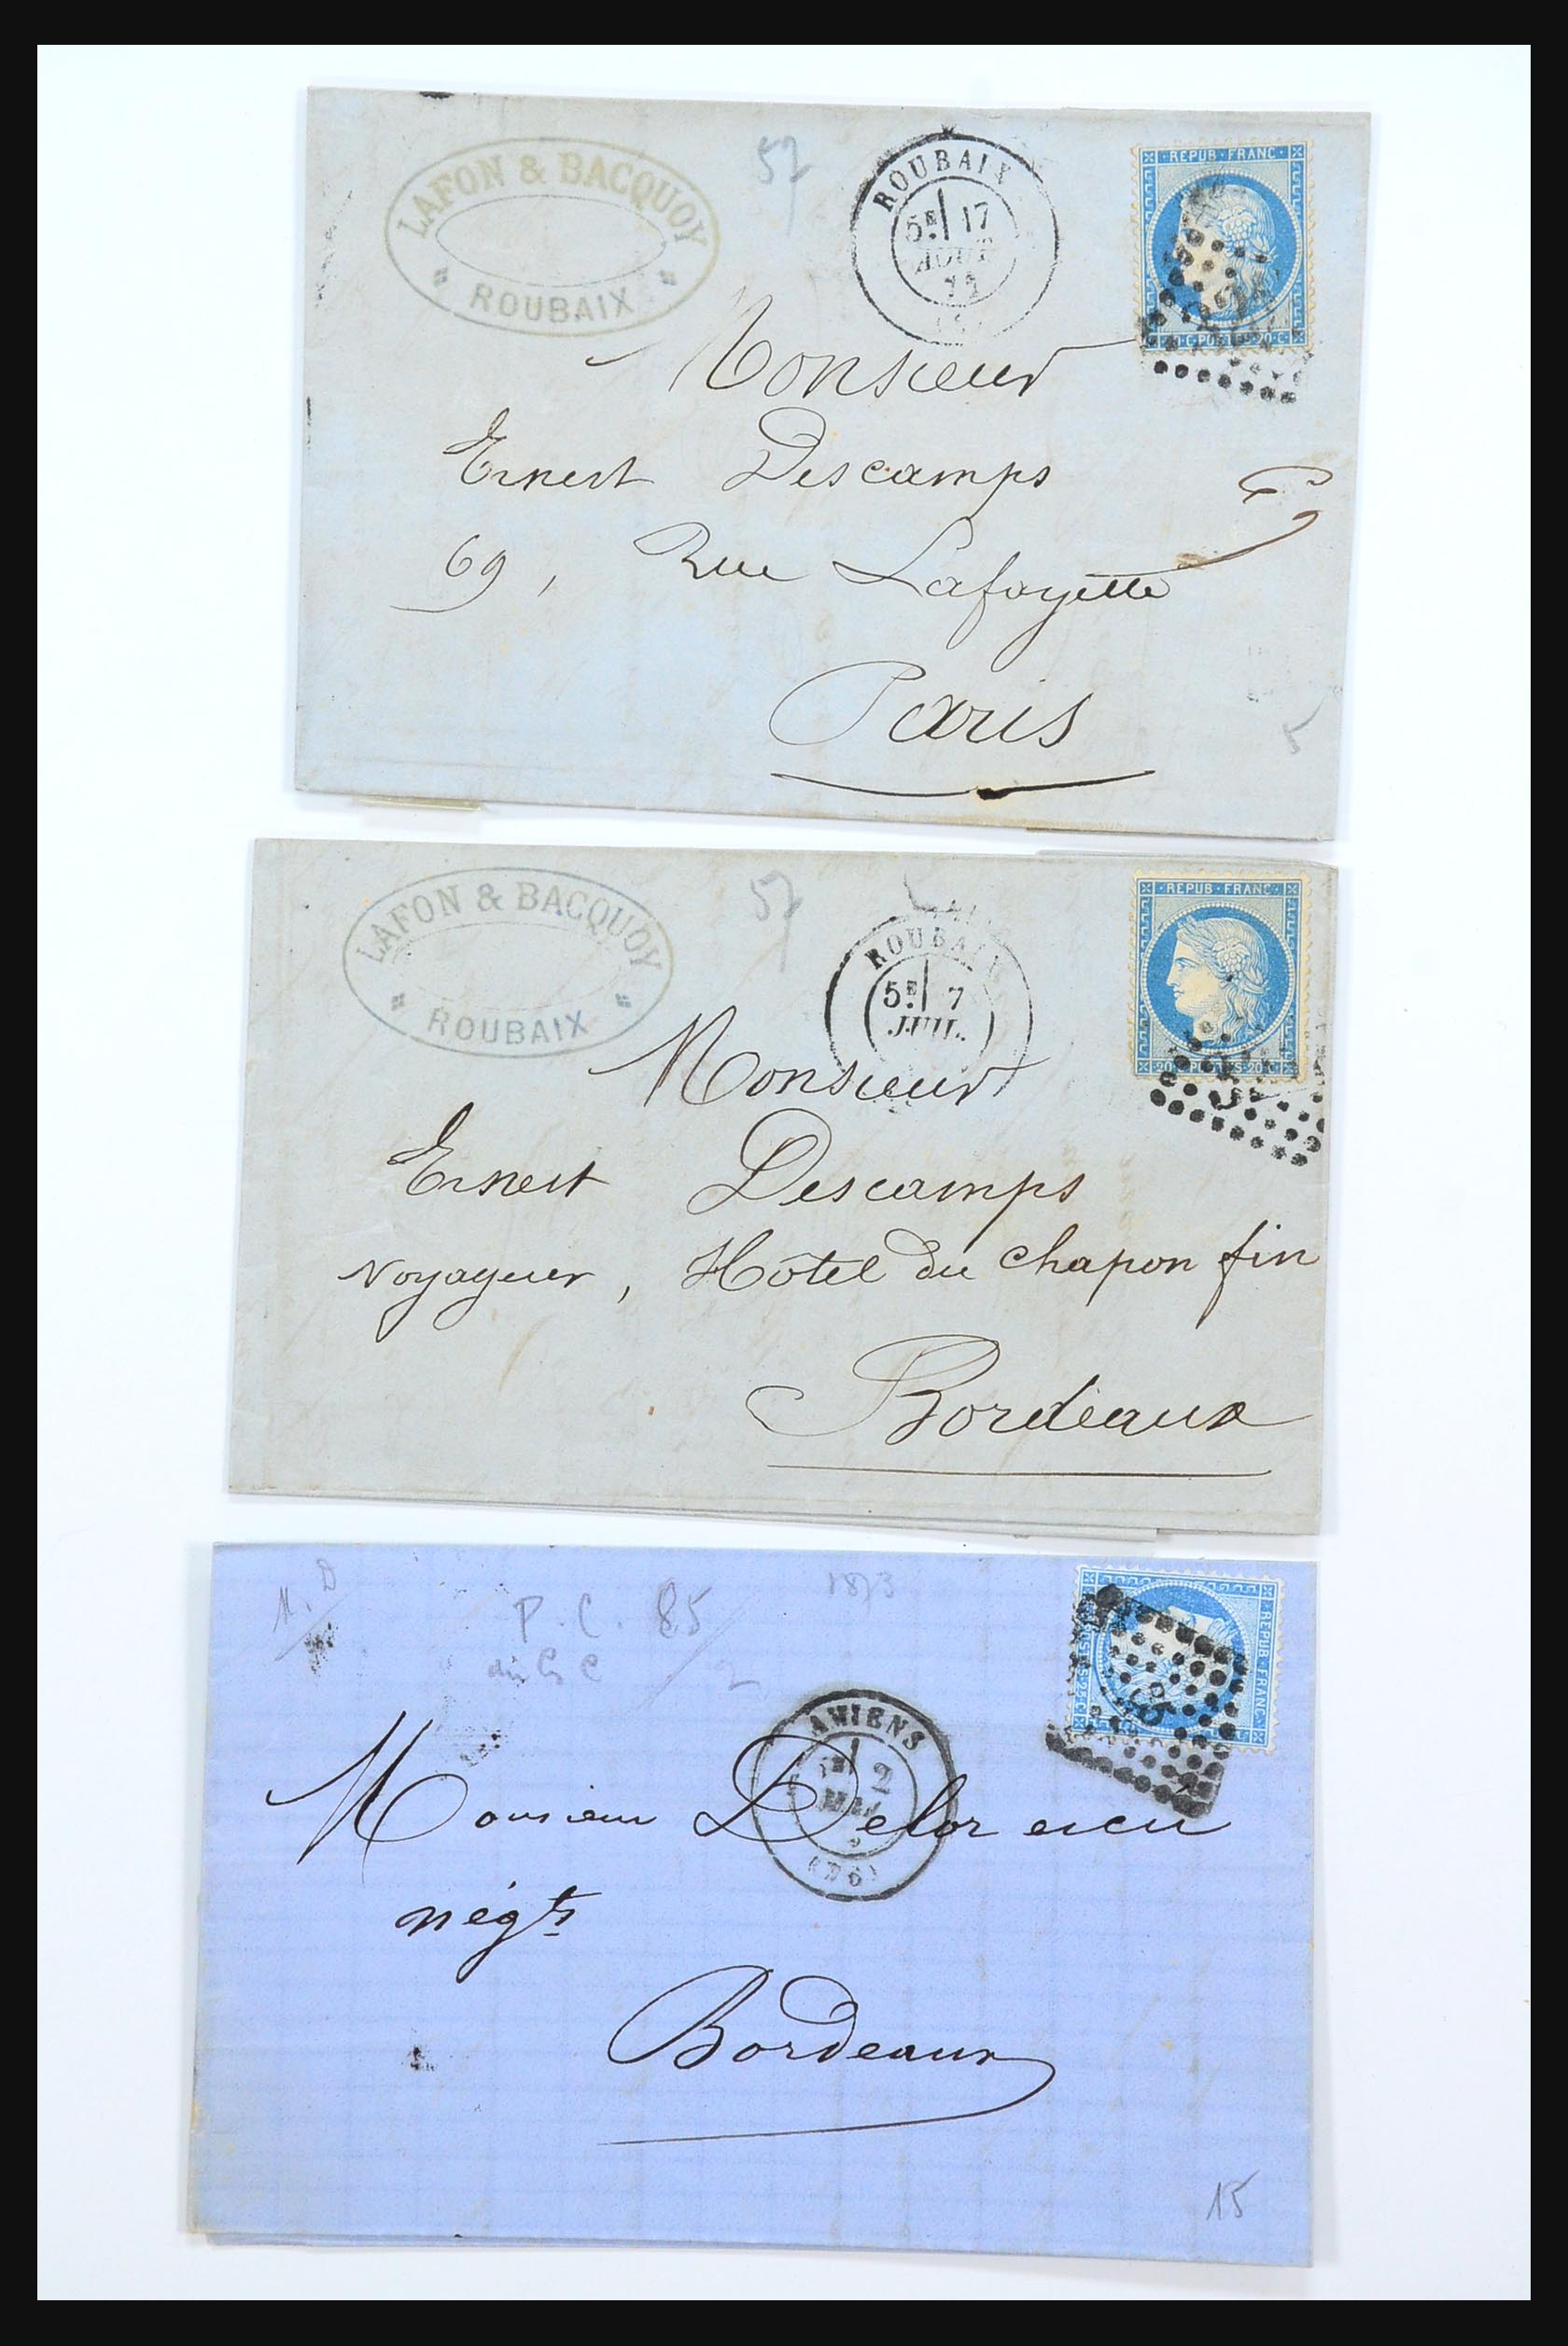 LAFON & BACQUOY
ROUBAIX
57
ROUBAIX
5E 17
AOUT
71
REPUB · FRANC
20 · C · POSTES · 20 · C
Monsieur
Ernest Descamps
69, Rue Lafayette
Paris
5
LAFON & BACQUOY
ROUBAIX
57
ROUBAIX
5E 7
JUIL.
REPUB · FRANC
20 · C · POSTES · 20 · C
Monsieur
Ernest Descamps
Voyageur, Hôtel du Chapon fin
Bordeaux
P.C. 85
1873
AMIENS
2
MAI
REPUB · FRANC
POSTES · 25 · C
85
Monsieur
négts
Bordeaux
15